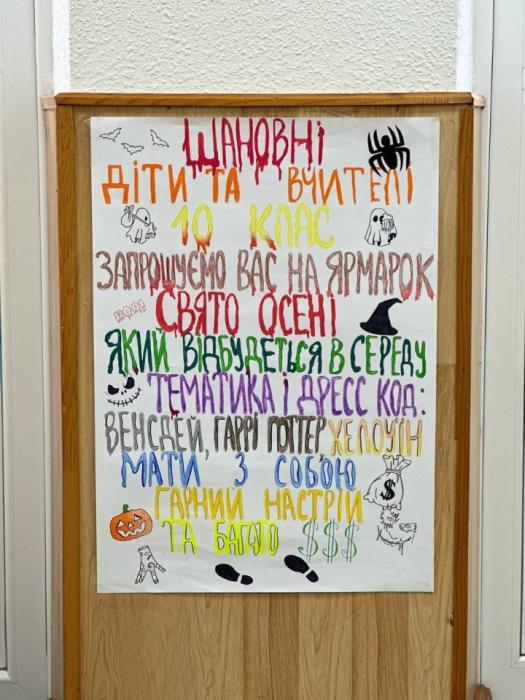 ШАНОВНІ
ДІТИ ТА ВЧИТЕЛІ
10 КЛАС
ЗАПРОШУЄМО ВАС НА ЯРМАРОК
СВЯТО ОСЕНІ
ЯКИЙ ВІДБУДЕТЬСЯ В СЕРЕДУ
ТЕМАТИКА І ДРЕСС КОД:
ВЕНСДЕЙ, ГАРРІ ПОТТЕР, ХЕЛОУІН
МАТИ З СОБОЮ
$
ГАРНИЙ НАСТРІЙ
ТА БАГАТО $$$